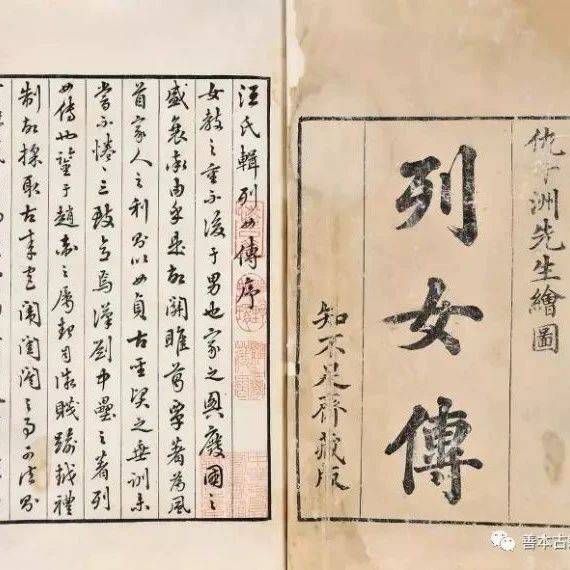 仇十洲先生繪圖
列女傳
知不足齋藏版
汪氏輯列女傳序
女教之重不後于男也家之興廢國之
盛衰率由乎是故關雎葛覃著為風
首家人之利則以女貞古聖賢之垂訓未
嘗不惓〻三致意焉漢劉中壘之著列
女傳也鑒于趙衛之屬起自微賤踰越禮
制故採取古來宮闈閨閣之事可法
善本古